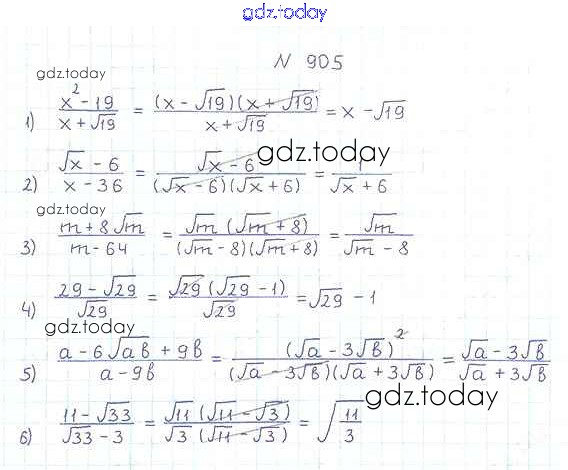 gdz.today
N 905
gdz.today
1) (x² - 19)/(x + √19) = ((x - √19)(x + √19))/(x + √19) = x - √19
gdz.today
2) (√x - 6)/(x - 36) = (√x - 6)/((√x - 6)(√x + 6)) = 1/(√x + 6)
gdz.today
3) (m + 8√m)/(m - 64) = (√m (√m + 8))/((√m - 8)(√m + 8)) = √m/(√m - 8)
4) (29 - √29)/√29 = (√29 (√29 - 1))/√29 = √29 - 1
gdz.today
5) (a - 6√(ab) + 9b)/(a - 9b) = (√a - 3√b)²/((√a - 3√b)(√a + 3√b)) = (√a - 3√b)/(√a + 3√b)
gdz.today
6) (11 - √33)/(√33 - 3) = (√11 (√11 - √3))/(√3 (√11 - √3)) = √(11/3)